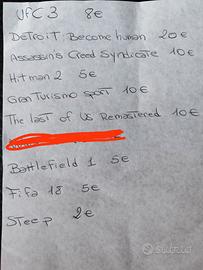 UFC 3 8€
Detroit: Become human 20€
Assassin's Creed Syndicate 10€
Hitman 2 5€
Gran Turismo sport 10€
The last of Us Remastered 10€
Battlefield 1 5€
Fifa 18 5€
Steep 2€
subito